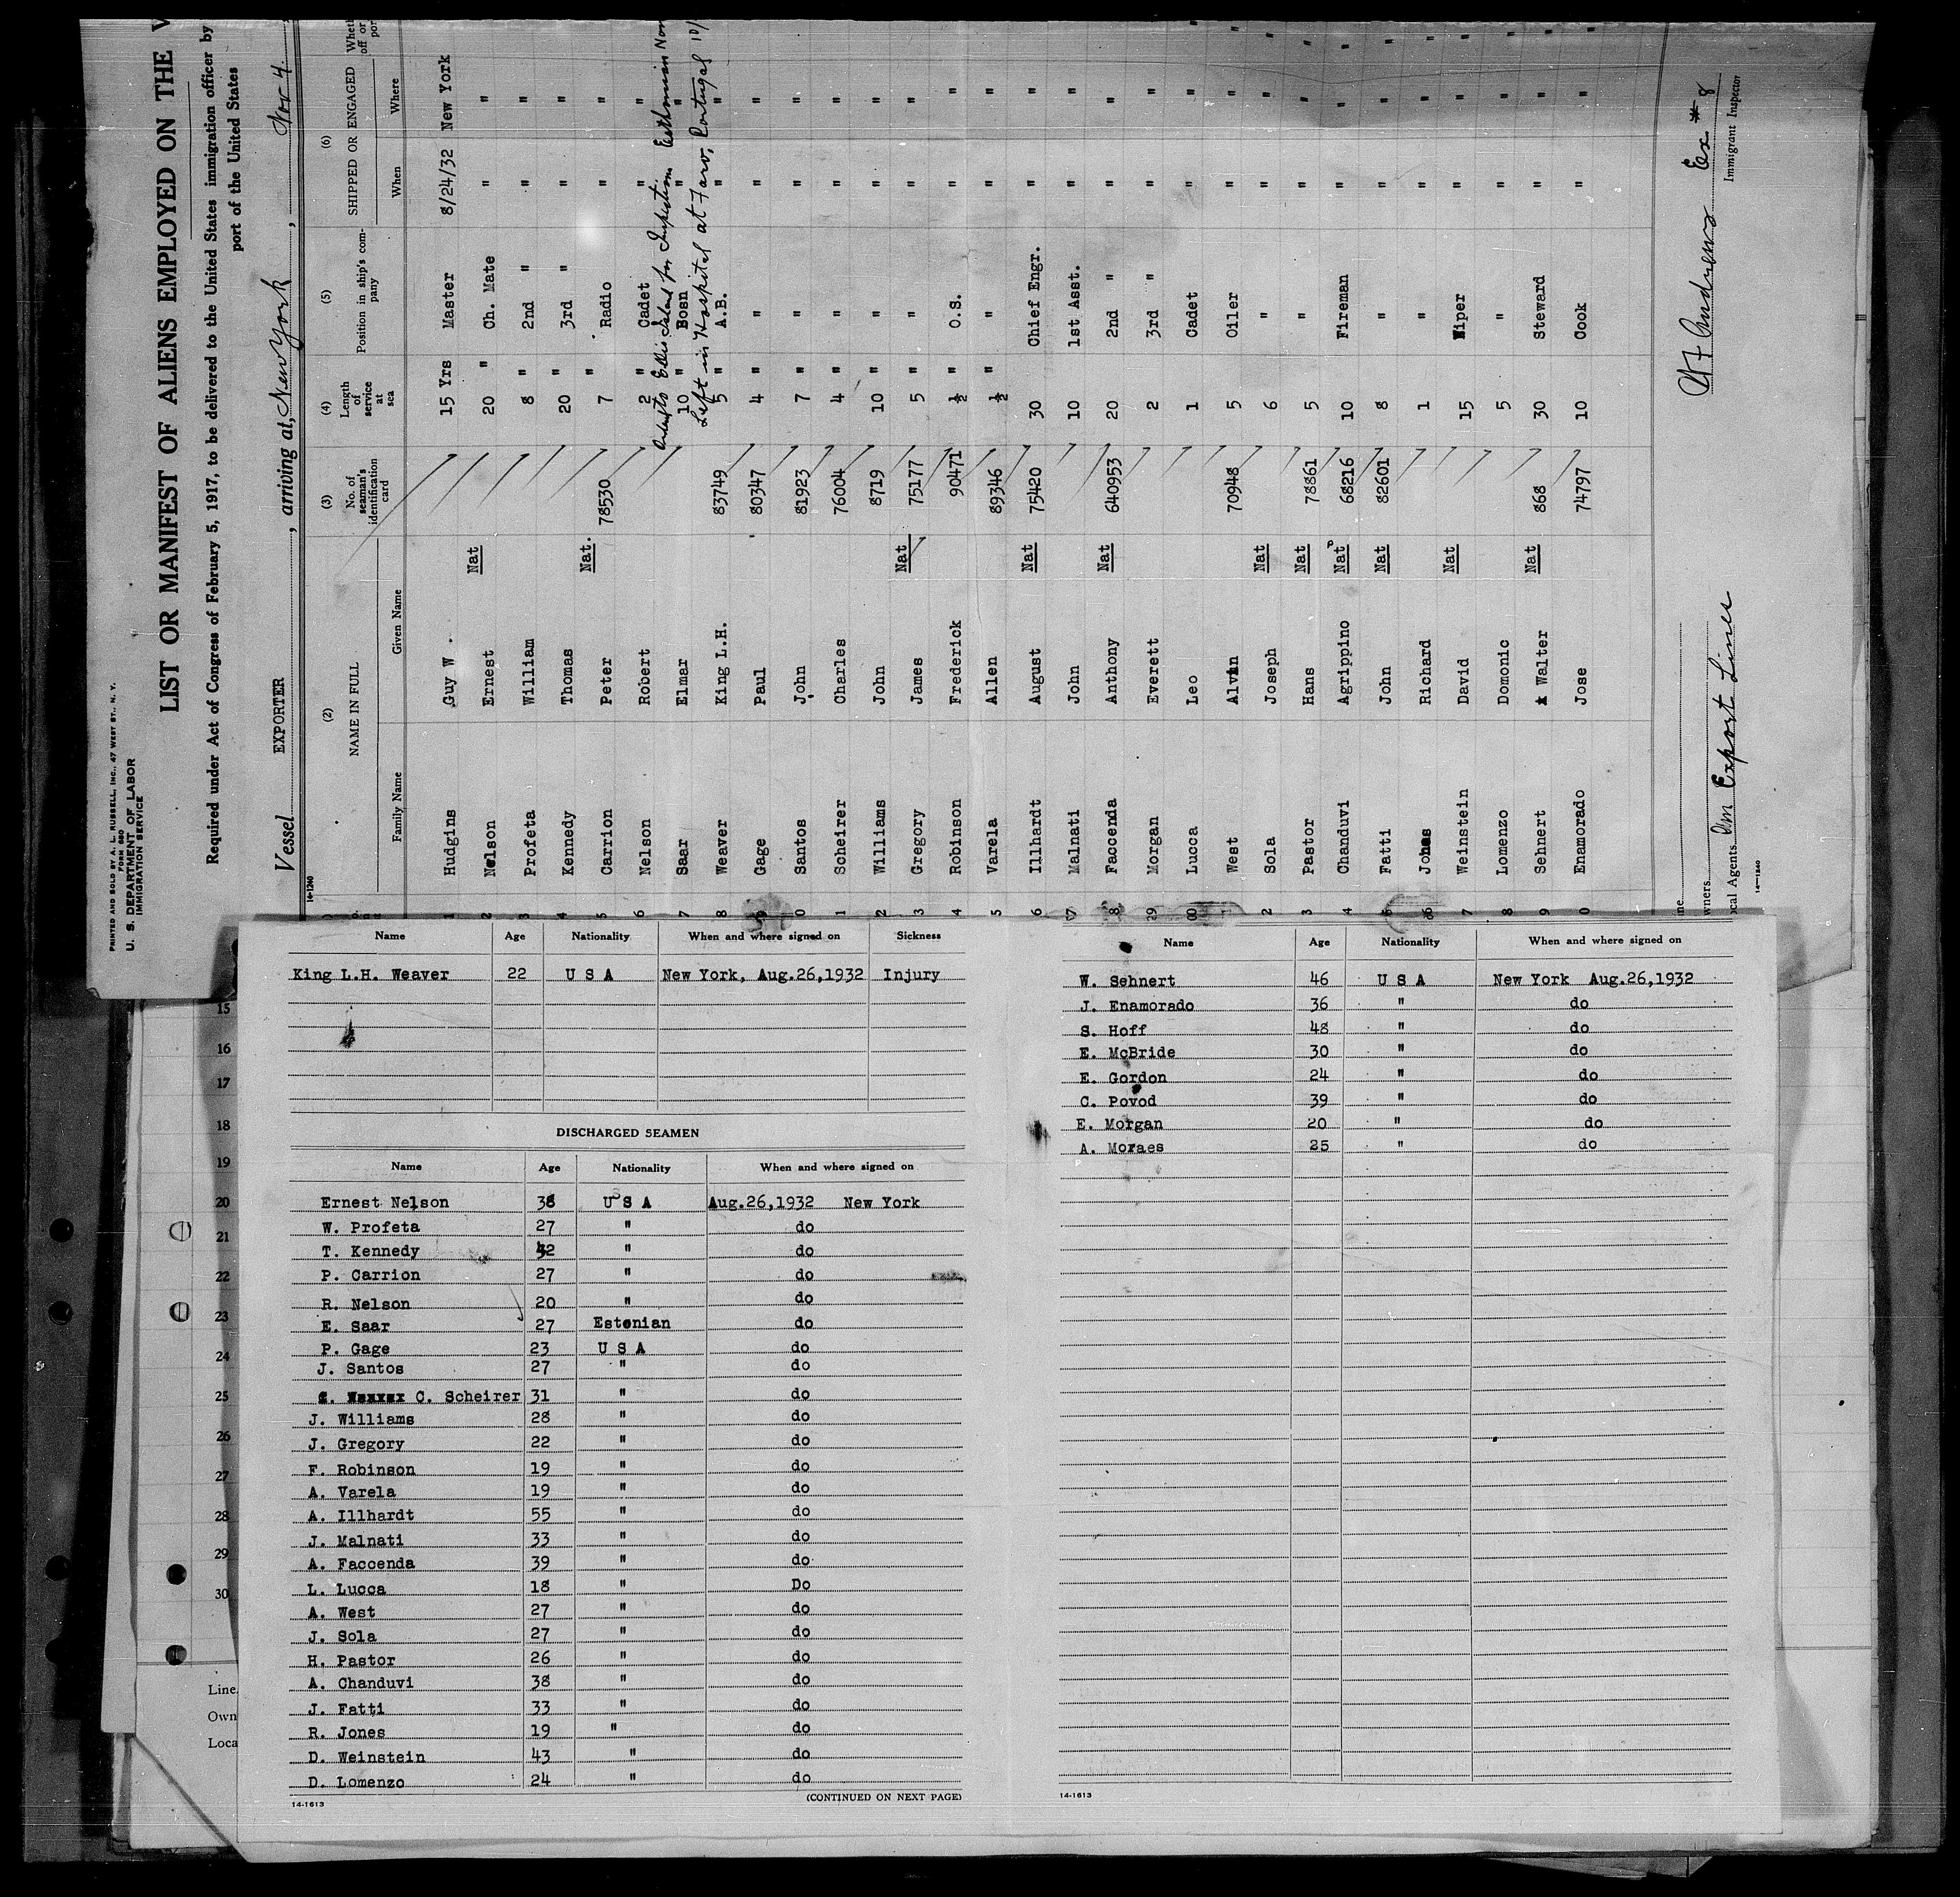 PRINTED AND SOLD BY A. L. RUSSELL, INC., 47 WEST ST., N. Y.
FORM 680
U. S. DEPARTMENT OF LABOR
IMMIGRATION SERVICE
LIST OR MANIFEST OF ALIENS EMPLOYED ON THE V
Required under Act of Congress of February 5, 1917, to be delivered to the United States immigration officer by
port of the United States
Vessel EXPORTER, arriving at, New York, Nov 4.
14-1240
(2) (3) (4) (5) (6)
NAME IN FULL No. of seaman's identification card Length of service at sea Position in ship's company SHIPPED OR ENGAGED
Family Name Given Name When Where
1 Hudgins Guy W. 15 Yrs Master 8/24/32 New York
2 Nelson Ernest Nat 20 " Ch. Mate " "
3 Profeta William 8 " 2nd " " "
4 Kennedy Thomas 20 " 3rd " " "
5 Carrion Peter Nat. 78530 7 " Radio " "
6 Nelson Robert 2 " Cadet " "
Ellis Island for Inspection Esthonian
7 Saar Elmar 10 " Bosn " "
Left in Hospital at Faro, Portugal 10/
8 Weaver King L.H. 83749 5 " A.B. " "
9 Gage Paul 80347 4 " " " "
0 Santos John 81923 7 " " " "
1 Scheirer Charles 76004 4 " " " "
2 Williams John 8719 10 " " " "
3 Gregory James Nat 75177 5 " " " "
4 Robinson Frederick 90471 ½ " O.S. " "
5 Varela Allen 89346 ½ " " " "
6 Illhardt August Nat 75420 30 Chief Engr. " "
7 Malnati John 10 1st Asst. " "
8 Faccenda Anthony Nat 640953 20 2nd " " "
29 Morgan Everett 2 3rd " " "
00 Lucca Leo 1 Cadet " "
1 West Alvin 70948 5 Oiler " "
2 Sola Joseph Nat 6 " " "
3 Pastor Hans Nat 78861 5 " " "
4 Chanduvi Agrippino Nat 68216 10 Fireman " "
5 Fatti John Nat 82601 8 " " "
6 Jones Richard 1 " " "
7 Weinstein David Nat 15 Wiper " "
8 Lomenzo Domonic 5 " " "
9 Sehnert Walter Nat 868 30 Steward " "
0 Enamorado Jose 74797 10 Cook " "
Andrews Ex # 8
Immigrant Inspector
ne
wners
ocal Agents Am Export Lines
14-1240
Name Age Nationality When and where signed on Sickness
King L.H. Weaver 22 U S A New York, Aug.26,1932 Injury
DISCHARGED SEAMEN
Name Age Nationality When and where signed on
Ernest Nelson 38 U S A Aug.26,1932 New York
W. Profeta 27 " do
T. Kennedy 42 " do
P. Carrion 27 " do
R. Nelson 20 " do
E. Saar 27 Estonian do
P. Gage 23 U S A do
J. Santos 27 " do
C. Scheirer 31 " do
J. Williams 28 " do
J. Gregory 22 " do
F. Robinson 19 " do
A. Varela 19 " do
A. Illhardt 55 " do
J. Malnati 33 " do
A. Faccenda 39 " do
L. Lucca 18 " Do
A. West 27 " do
J. Sola 27 " do
H. Pastor 26 " do
A. Chanduvi 38 " do
J. Fatti 33 " do
R. Jones 19 " do
D. Weinstein 43 " do
D. Lomenzo 24 " do
14-1613 (CONTINUED ON NEXT PAGE)
Name Age Nationality When and where signed on
W. Sehnert 46 U S A New York Aug.26,1932
J. Enamorado 36 " do
S. Hoff 48 " do
E. McBride 30 " do
E. Gordon 24 " do
C. Povod 39 " do
E. Morgan 20 " do
A. Moraes 25 " do
14-1613
15
16
17
18
19
20
21
22
23
24
25
26
27
28
29
30
Line
Own
Loca